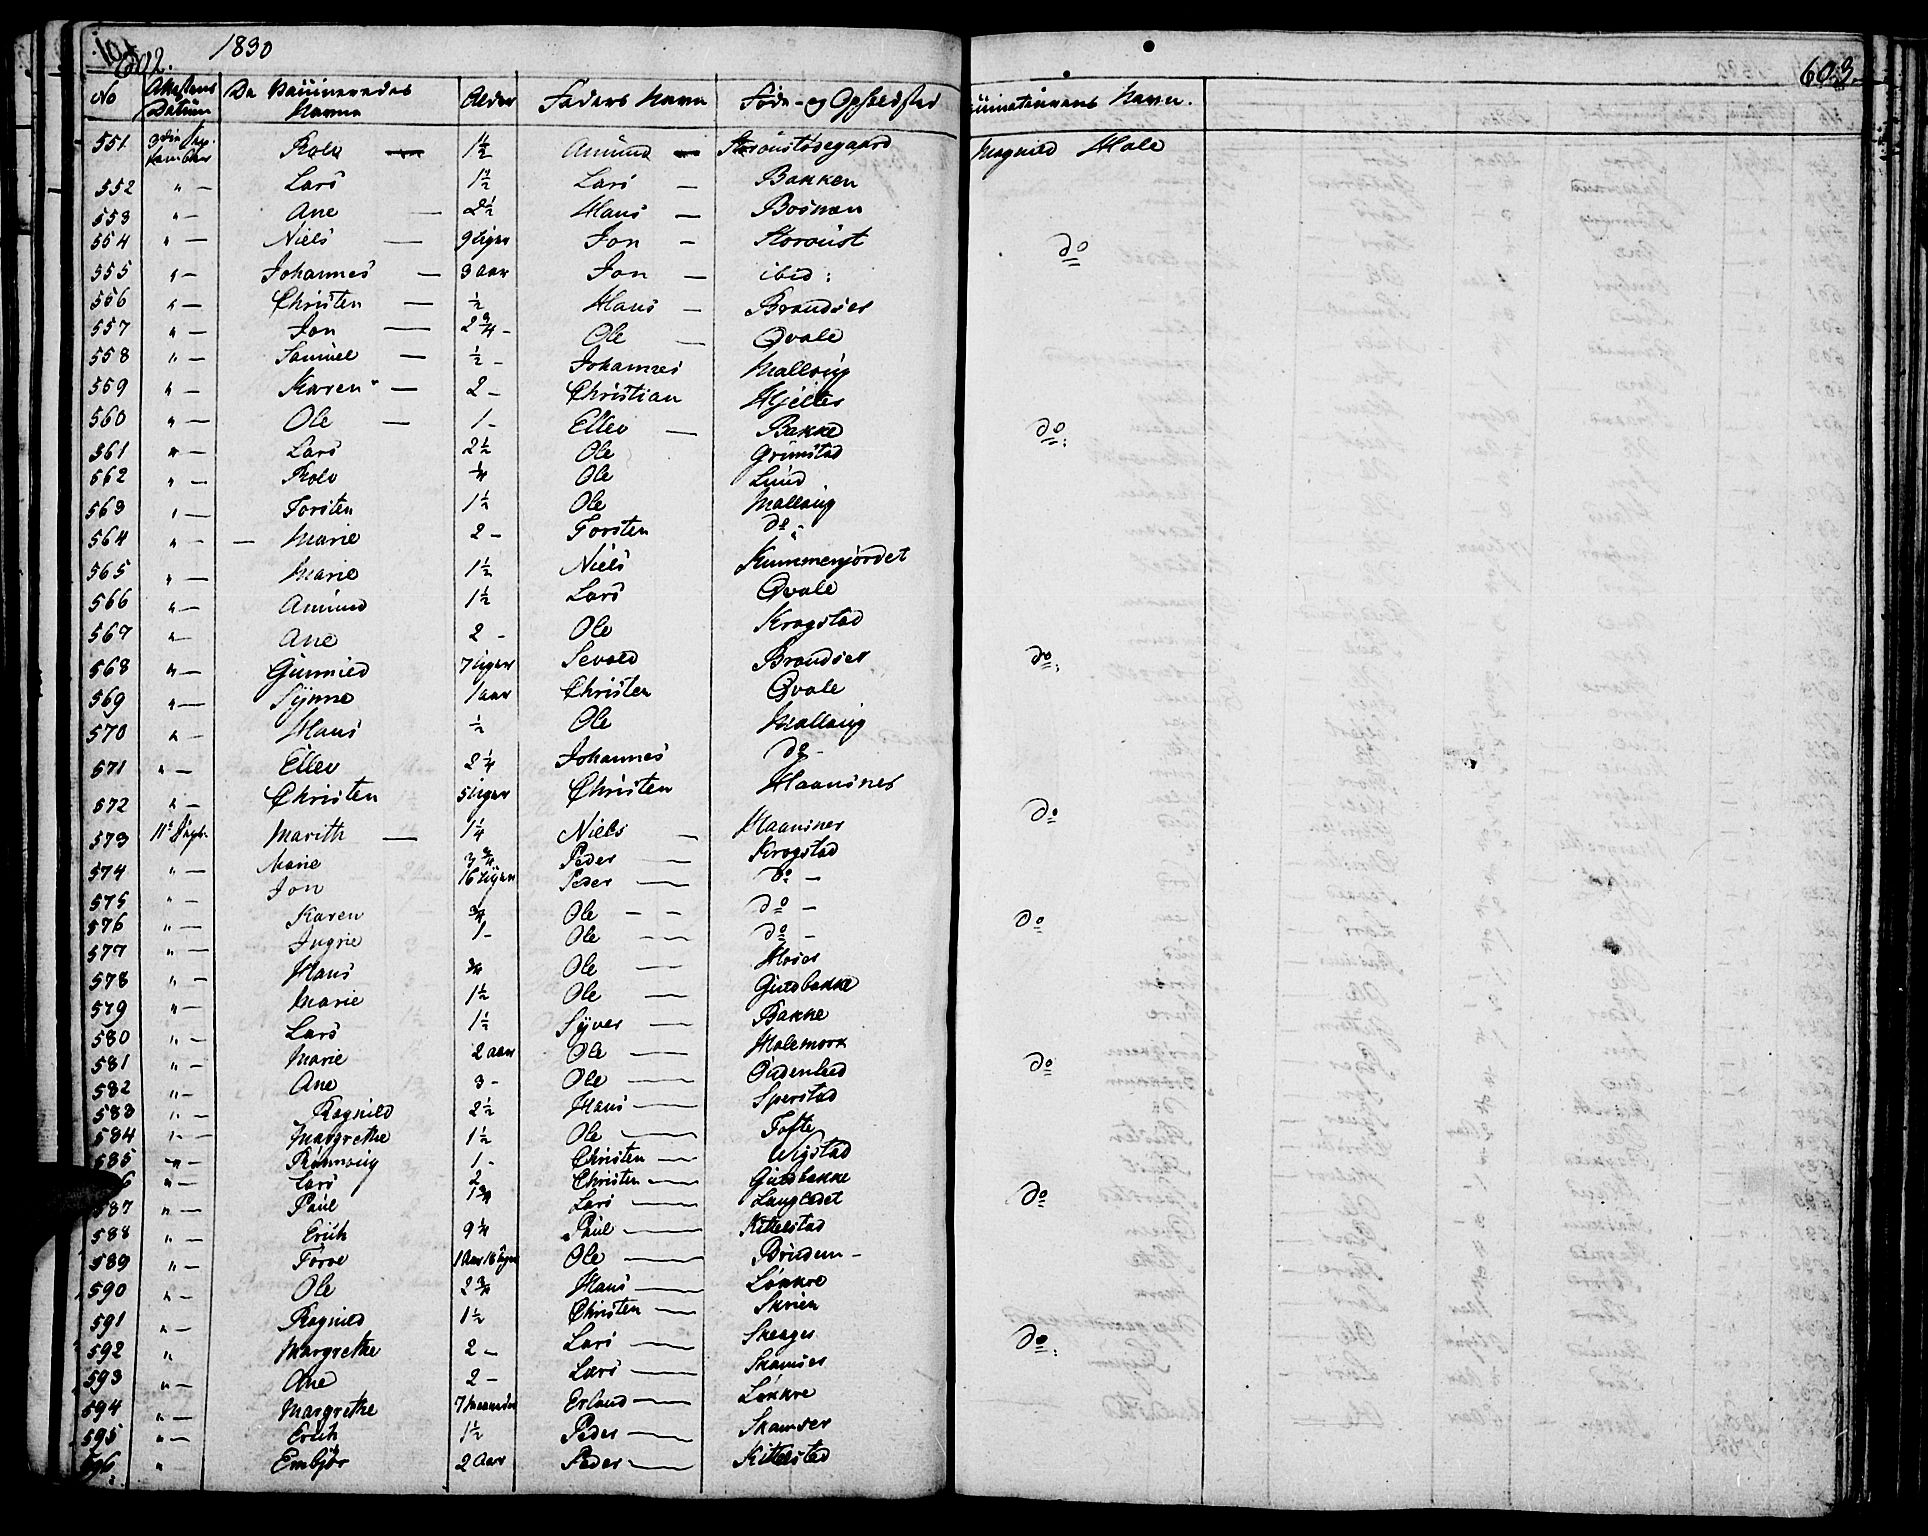 602. 1830 603.
No Attestens Datum De Vaccineredes Navne Alder Faders Navn Føde- og Opholdsted Vaccinateurens Navn.
551 9de Sep- tember Rolv 1½ Amund Storoustødegaard Magnild Hole
552 " — Lars 1½ Lars — Bakken
553 " — Ane — 2½ Hans — Bosnæn
554 " — Niels — 9 Uger Jon — Storoust do
555 " — Johannes — 3 aar Jon — ibid:
556 " — Christen — ½ Hans — Brandser
557 " — Jon — 2¾ - Ole — Qvale
558 " — Samuel — ½ - Johannes Malloug
559 " — Karen — 2 - Christian Hjeltes
560 " — Ole — 1 - Ellev — Bakke do:
561 " — Lars 2½ Ole Grimstad
562 " — Rolv ¼ Ole Lund
563 " — Torsten 1½ Ole Malloug
564 " — — Marie 2 - Torsten do -
565 " — Marie 1½ Niels Kummenjordet
566 " — Amund 1½ Lars Qvale
567 " — Ane 2 - Ole Krogstad
568 " — Gunnild 7 Uger Sevald Brandser do:
569 " — Synne 1 aar Christen Qvale
570 " — Hans ½ Ole Malloug
571 " — Ellev 2¼ Johannes do -
572 " — Christen 5 Uger Christen Haansnes
573 11te Septr. Marith — 1¼ Niels — Haansnes do
574 " — Marie 3¾ Peder — Krogstad
575 " — Jon 16 Uger Peder — do —
576 " — Karen ¾ Ole — — do — do
577 " — Ingrie 1 - Ole — do —
578 " — Hans ¾ Ole — Moser
579 " — Marie 1½ Ole — Gudsbakke
580 " — Lars 1½ Syver — Bakke
581 " — Marie 2 aar Ole — Holemork do
582 " — Ane 3 - Ole — Oudenlied
583 " — Ragnild 2½ Hans — Sperstad
584 " — Margrethe 1½ Ole — Tofte
585 " — Rønnoug 1 - Christen — Nystad
6 " — Lars 2 Christen — Gudsbakke
587 " — Paul 1¾ Lars — Langledet do
588 " — Erich 9¼ Paul — Kittelstad
589 " — Torve 1 Aar 18 Uger Ole — Bruden —
590 " — Ole 2¾ Hans — Løkkre
591 " — Ragnild 1½ Christen — Skrien
592 " — Margrethe 2 — Lars — Skeager do:
593 " — Ane 2 — Lars — Skamser
594 " — Margrethe 7 Maaneder Erland — Løkkre
595 " — Erich 1½ Peder — Skamser
596 " Embjør 2 Aar Peder — Kittelstad